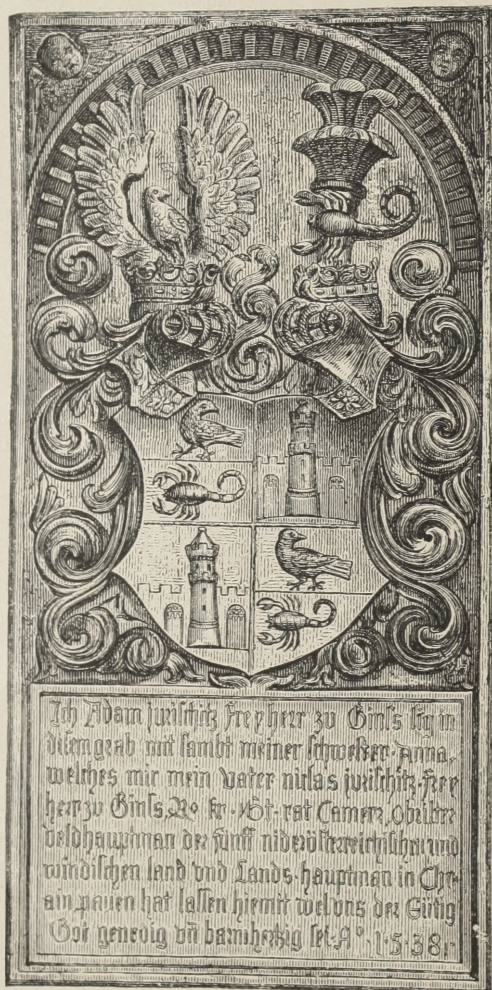 Ich Adam Jurischitz Freyherr zu Ginss lig in
disem grab mit sambt meiner schwester Anna,
welches mir mein Vater niclas jurischitz Frey
herr zu Ginss. Ro. kr. Mt. rat Camerr, Obrister
Veldhauptman der funff niderösterreichischen und
windischen land vnd Lands hauptman in Chr-
ain pauen hat lassen hiemit wel vns der Gütig
Got genedig vn barmhertzig sei. Ao. 1.5.38.